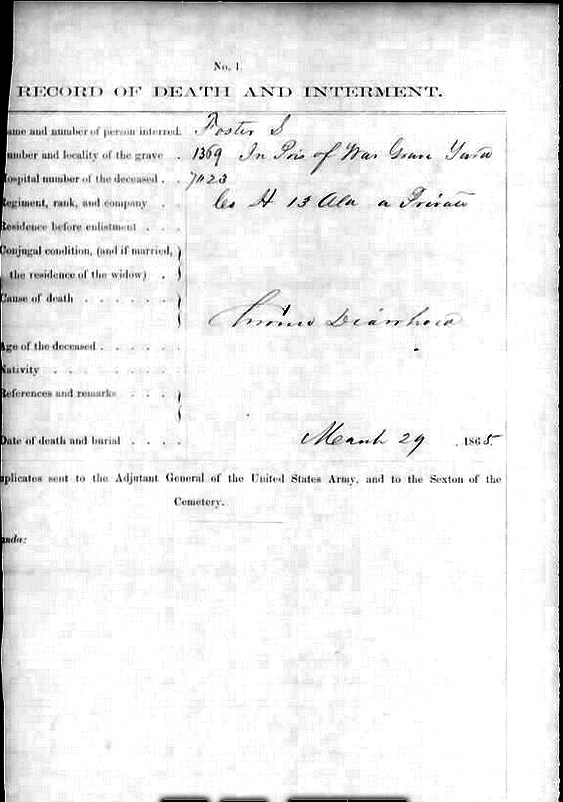 No. 1.
RECORD OF DEATH AND INTERMENT.
ame and number of person interred. Foster S
umber and locality of the grave . 1369 In Pris of War Grave Yard
Hospital number of the deceased . . 7423
Regiment, rank, and company . . Co H 13 Ala a Private
Residence before enlistment . . .
Conjugal condition, (and if married,
the residence of the widow) .
Cause of death . . . . . .
Chronic Diarrhoea
Age of the deceased . . . . .
Nativity . . . . . .
References and remarks . . .
Date of death and burial . . . . March 29 , 1865.
uplicates sent to the Adjutant General of the United States Army, and to the Sexton of the
Cemetery.
anda: